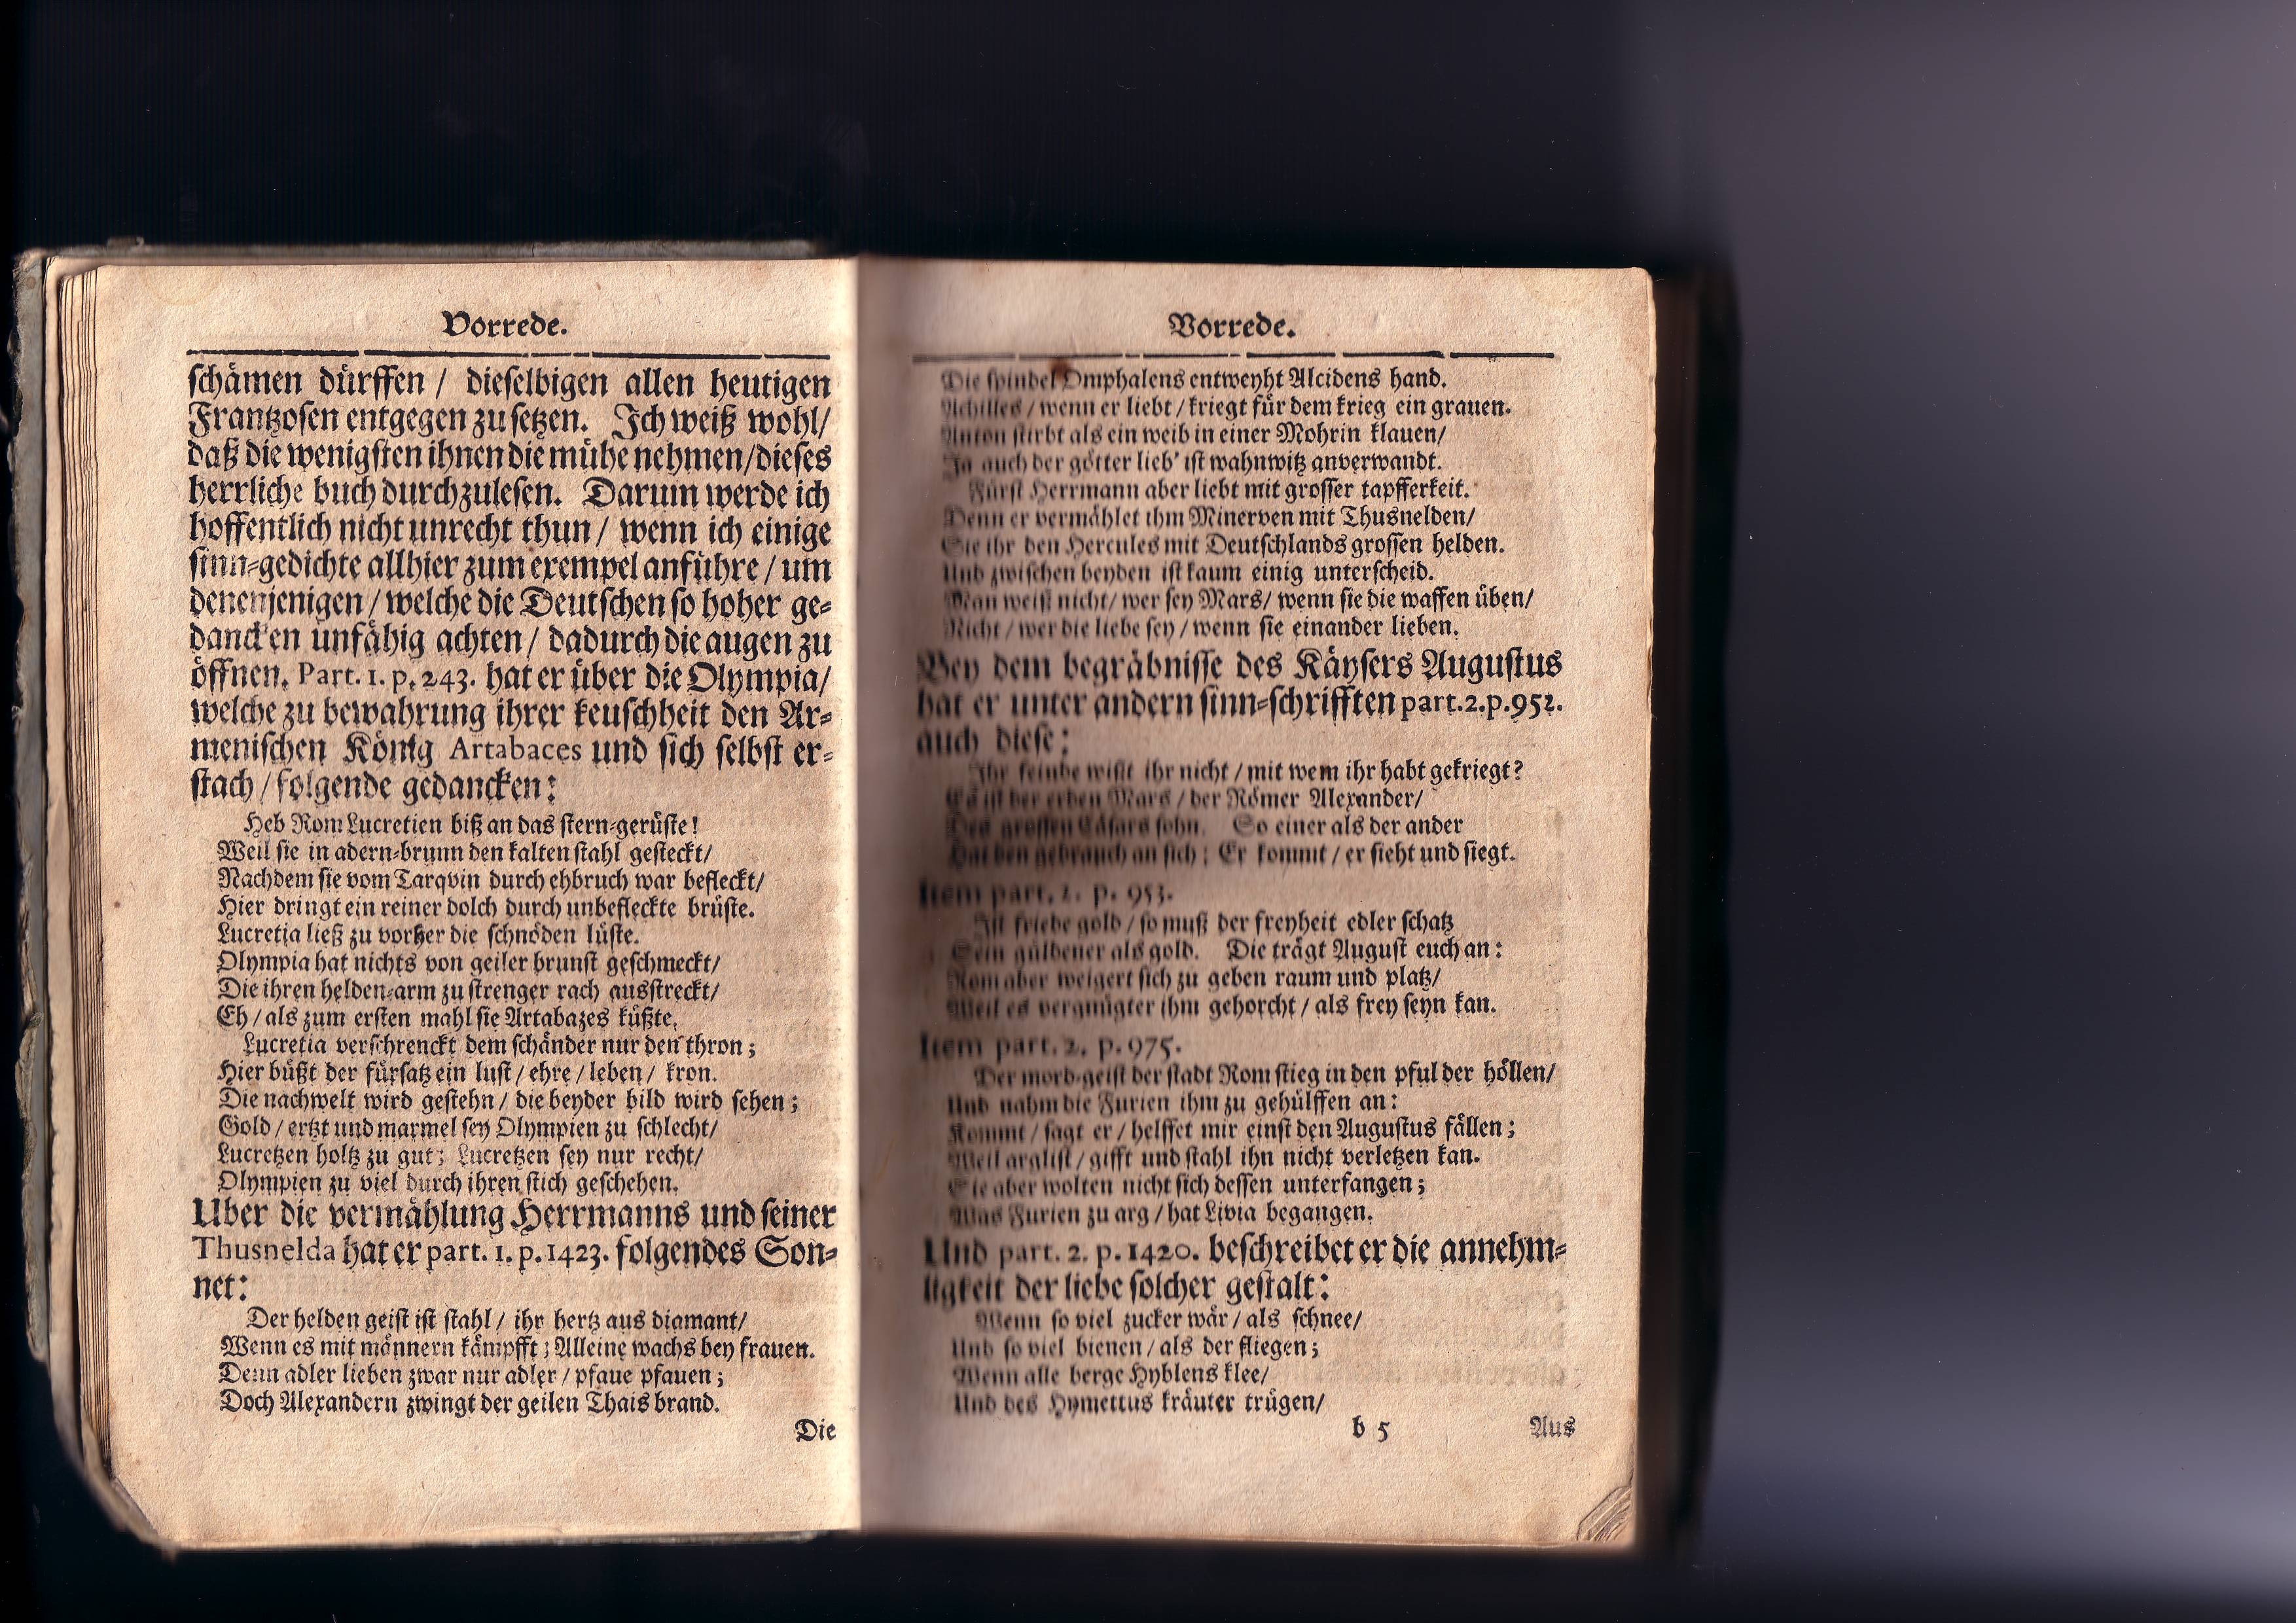 Vorrede.
schämen dürffen / dieselbigen allen heutigen
Frantzosen entgegen zu setzen. Ich weiß wohl/
daß die wenigsten ihnen die mühe nehmen/dieses
herrliche buch durchzulesen. Darum werde ich
hoffentlich nicht unrecht thun / wenn ich einige
sinn-gedichte allhier zum exempel anführe / um
denenjenigen / welche die Deutschen so hoher ge-
dancken unfähig achten / dadurch die augen zu
öffnen. Part. 1. p. 243. hat er über die Olympia/
welche zu bewahrung ihrer keuschheit den Ar-
menischen König Artabaces und sich selbst er-
stach / folgende gedancken:
Heb Rom Lucretien biß an das stern-gerüste!
Weil sie in adern-brunn den kalten stahl gesteckt/
Nachdem sie vom Tarqvin durch ehbruch war befleckt/
Hier dringt ein reiner dolch durch unbefleckte brüste.
Lucretia ließ zu vorher die schnöden lüste.
Olympia hat nichts von geiler brunst geschmeckt/
Die ihren helden-arm zu strenger rach ausstreckt/
Eh / als zum ersten mahl sie Artabazes küßte.
Lucretia verschrenckt dem schänder nur den thron;
Hier büßt der fürsatz ein lust / ehre / leben / kron.
Die nachwelt wird gestehn / die beyder bild wird sehen;
Gold / ertzt und marmel sey Olympien zu schlecht/
Lucretzen holtz zu gut; Lucretzen sey nur recht/
Olympien zu viel durch ihren stich geschehen.
Uber die vermählung Herrmanns und seiner
Thusnelda hat er part. 1. p. 1423. folgendes Son-
net:
Der helden geist ist stahl / ihr hertz aus diamant/
Wenn es mit männern kämpfft; Alleine wachs bey frauen.
Denn adler lieben zwar nur adler / pfaue pfauen;
Doch Alexandern zwingt der geilen Thais brand.
Die
Vorrede.
Die spindel Omphalens entweyht Alcidens hand.
Achilles / wenn er liebt / kriegt für dem krieg ein grauen.
Anton stirbt als ein weib in einer Mohrin klauen/
Ja auch der götter lieb' ist wahnwitz anverwandt.
Fürst Herrmann aber liebt mit grosser tapfferkeit.
Denn er vermählet ihm Minerven mit Thusnelden/
Sie ihr den Hercules mit Deutschlands grossen helden.
Und zwischen beyden ist kaum einig unterscheid.
Man weiß nicht / wer sey Mars / wenn sie die waffen üben/
Nicht / wer die liebe sey / wenn sie einander lieben.
Bey dem begräbnisse des Käysers Augustus
hat er unter andern sinn-schrifften part. 2. p. 952.
auch diese:
Ihr feinde wißt ihr nicht / mit wem ihr habt gekriegt?
Es ist der erden Mars / der Römer Alexander/
Des grossen Cäsars sohn. So einer als der ander
Hat den gebrauch an sich: Er kommt / er sieht und siegt.
Item part. 2. p. 953.
Ist friede gold / so muß der freyheit edler schatz
Sein güldener als gold. Die trägt August euch an:
Rom aber weigert sich zu geben raum und platz/
Weil es vergnügter ihm gehorcht / als frey seyn kan.
Item part. 2. p. 975.
Der mord-geist der stadt Rom stieg in den pful der höllen/
Und nahm die Furien ihm zu gehülffen an:
Kommt / sagt er / helffet mir einst den Augustus fällen;
Weil arglist / gifft und stahl ihn nicht verletzen kan.
Sie aber wolten nicht sich dessen unterfangen;
Was Furien zu arg / hat Livia begangen.
Und part. 2. p. 1420. beschreibet er die annehm-
ligkeit der liebe solcher gestalt:
Wenn so viel zucker wär / als schnee/
Und so viel bienen / als der fliegen;
Wenn alle berge Hyblens klee/
Und des Hymettus kräuter trügen/
b 5
Aus